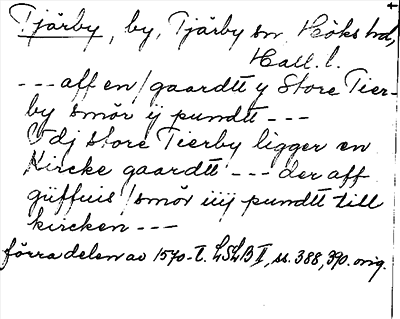 Tjärby, by, Tjärby sn Höks hd,
Hall. l.
--- aff en gaardtt y Store Tier-
by smör ij pundtt ---
I dj store Tierby ligger en
Kircke gaardtt --- der aff
güffuis smör iiij pundtt till
kircken ---
förra delen av 1570-t. LSLB II, ss. 388, 390. orig.